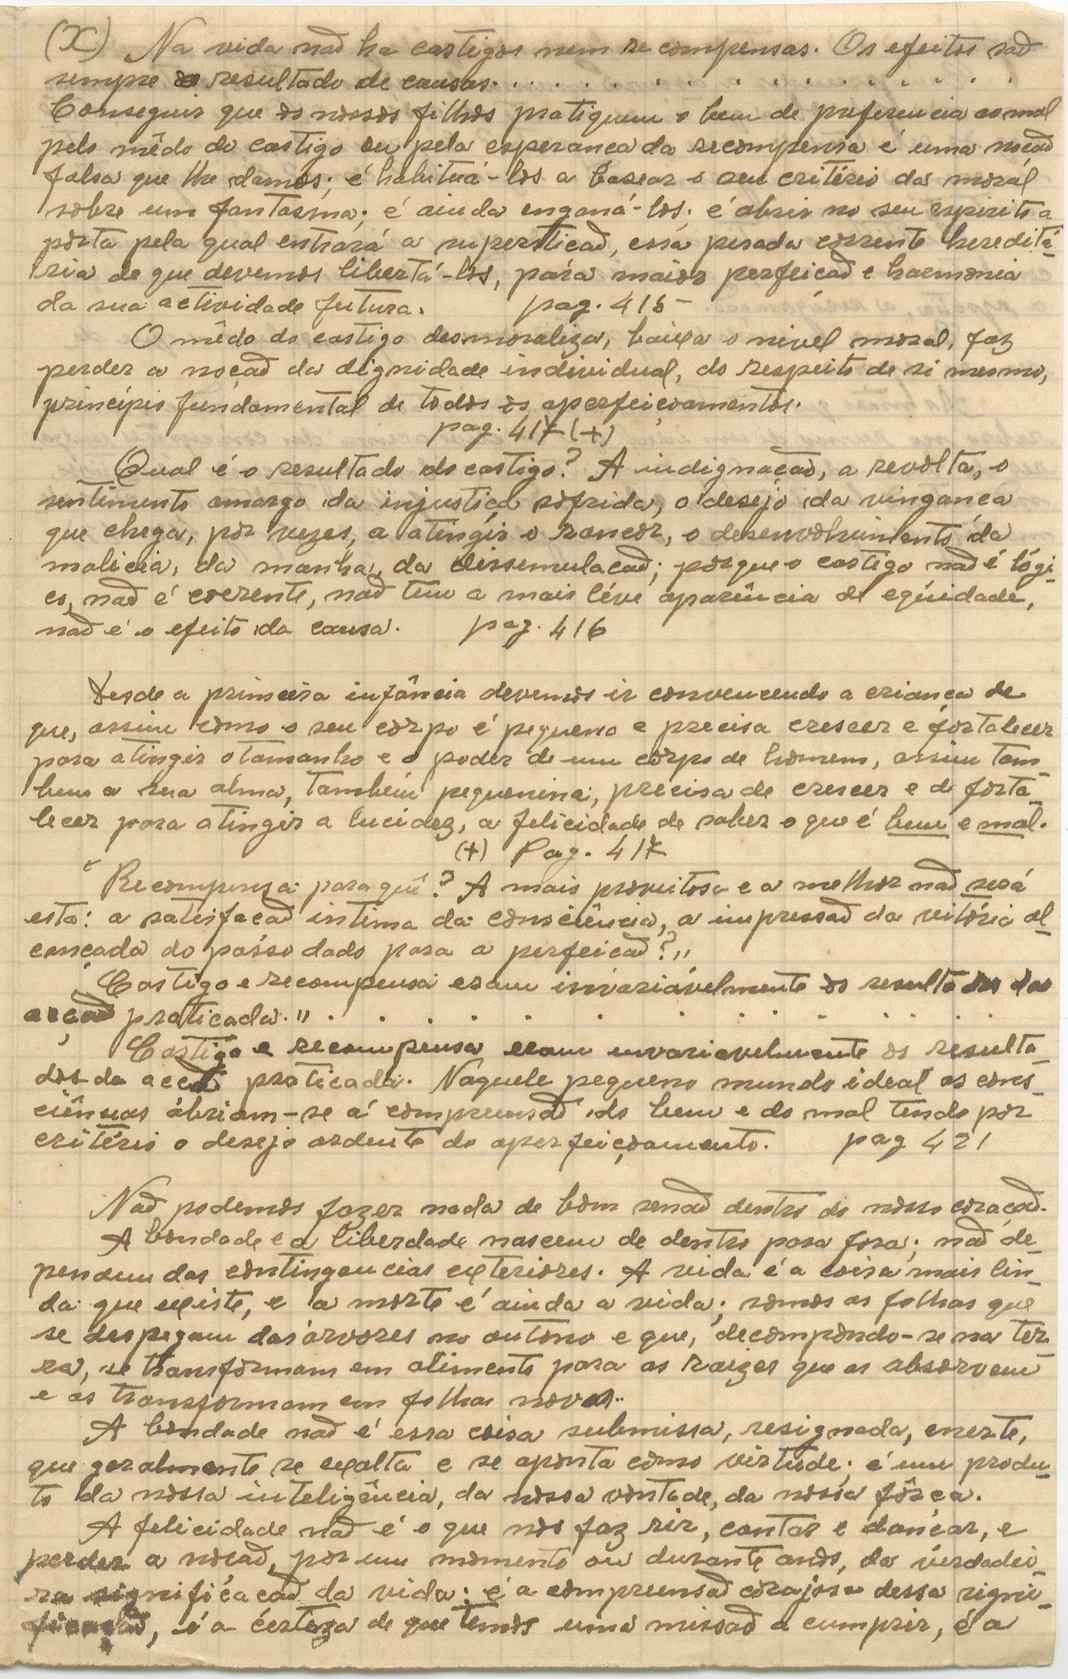 (X) Na vida não ha castigos nem recompensas. Os efeitos são
sempre o resultado de causas. . . . . . . . . . . . . . . .
Conseguir que os nossos filhos pratiquem o bem de preferencia ao mal
pelo mêdo do castigo ou pela esperanca da recompensa é uma nocão
falsa que lhe damos; é habituá-los a basear o seu critério da morál
sôbre um fantasma; é ainda enganá-los; é abrir no seu espirito a
porta pela qual entrará a supersticão, essa pesada corrente heredita-
ria de que devemos libertá-los, pára maior perfeicão e harmonia
da sua actividade futura. pag. 415-
O mêdo do castigo desmoraliza, baixa o nivel moral, faz
perder a noção da dignidade individual, do respeito de si mesmo,
princípio fundamental de todos os aperfeiçoamentos.
pag. 417 (+)
Qual é o resultado do castigo? A indignação, a revolta, o
sentimento amargo da injustiça sofrida, o desejo da vinganca
que chega, por vezes, a atingir o rancor, o desenvolvimento da
malicia, da manha, da dissemulacão; porque o castigo não é lógi-
co, não é coerente, não tem a mais léve aparência de eqüidade,
não é o efeito da causa. pag. 416
Desde a primeira infância devemos ir convencendo a crianca de
que, assim como o seu corpo é pequeno e precisa crescer e fortalecer
para atingir o tamanho e o poder de um corpo de homem, assim tam-
bem a sua alma, também pequenina, precisa de crescer e de forta-
lecer para atingir a lucidez, a felicidade de saber o que é bem e mal.
(+) Pag. 417
"Recompensa para quê? A mais proveitosa e a melhor não será
esta: a satisfacão intima da consciência, a impressão da vitória al-
cançada do passo dado para a perfeicão?"
"Castigo e recompensa eram invariávelmente os resultados das
acção praticada." . . . . . . . . . . . .
Castigo e recompensa eram invariavelmente os resulta-
dos da acção praticada. Naquele pequeno mundo ideal as cons-
ciências abriam-se á compreensão do bem e do mal tendo por
critério o desejo ardente do aperfeiçoamento. pag 421
Não podemos fazer nada de bom senão dentro do nosso coracão.
A bondade e a liberdade nascem de dentro para fora; não de-
pendem das contingencias exteriores. A vida é a coisa mais lin-
da que existe, e a morte é ainda a vida; somos as folhas que
se despegam das árvores no outono e que, decompondo-se na ter-
ra, se transformam em alimento para as raizes que as absorvem
e as transformam em folhas novas.
A bondade não é essa coisa submissa, resignada, inerte,
que geralmente se exalta e se aponta como virtude; é um produ-
to da nossa inteligência, da nossa vontade, da nossa fôrca.
A felicidade não é o que nos faz rir, cantar e dançar, e
perder a nocão, por um momento ou durante anos, da verdadei-
ra significacão da vida; é a compreensão corajosa dessa signi-
ficação, é a certeza de que temos uma missão a cumprir, é a